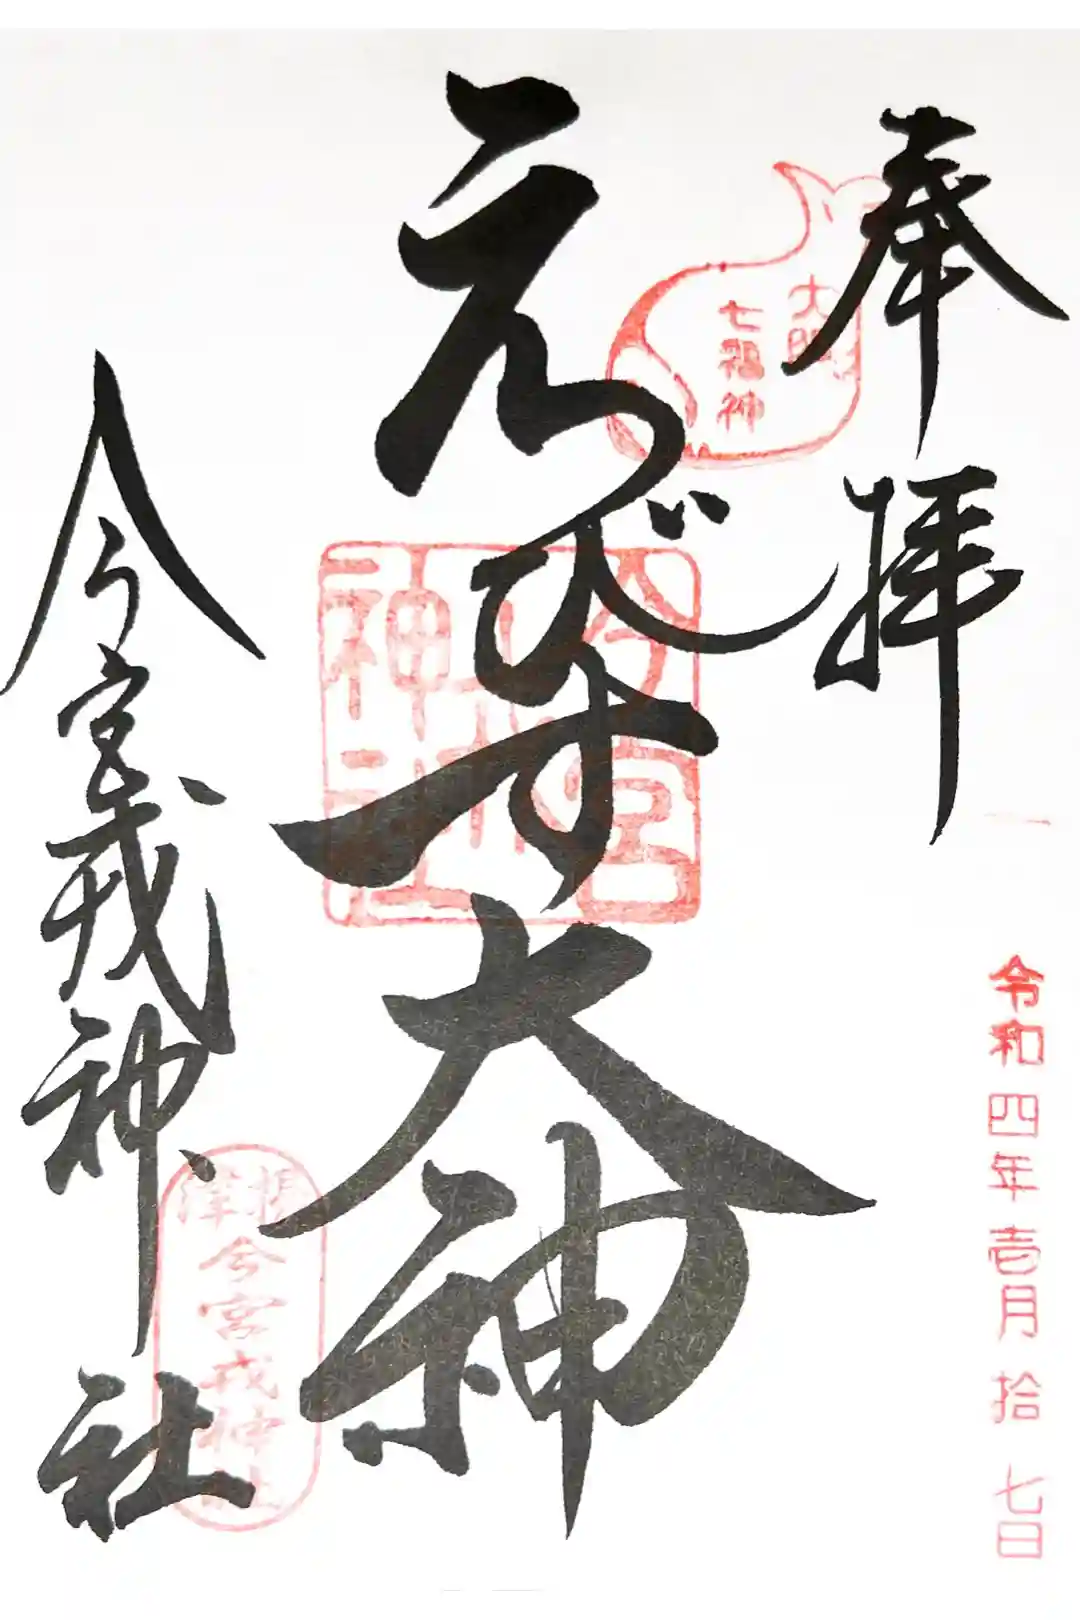 奉拝
大阪
七福神
令和四年壱月拾七日
えびす大神
今宮戎
神社
今宮戎神社
摂津
今宮戎神社